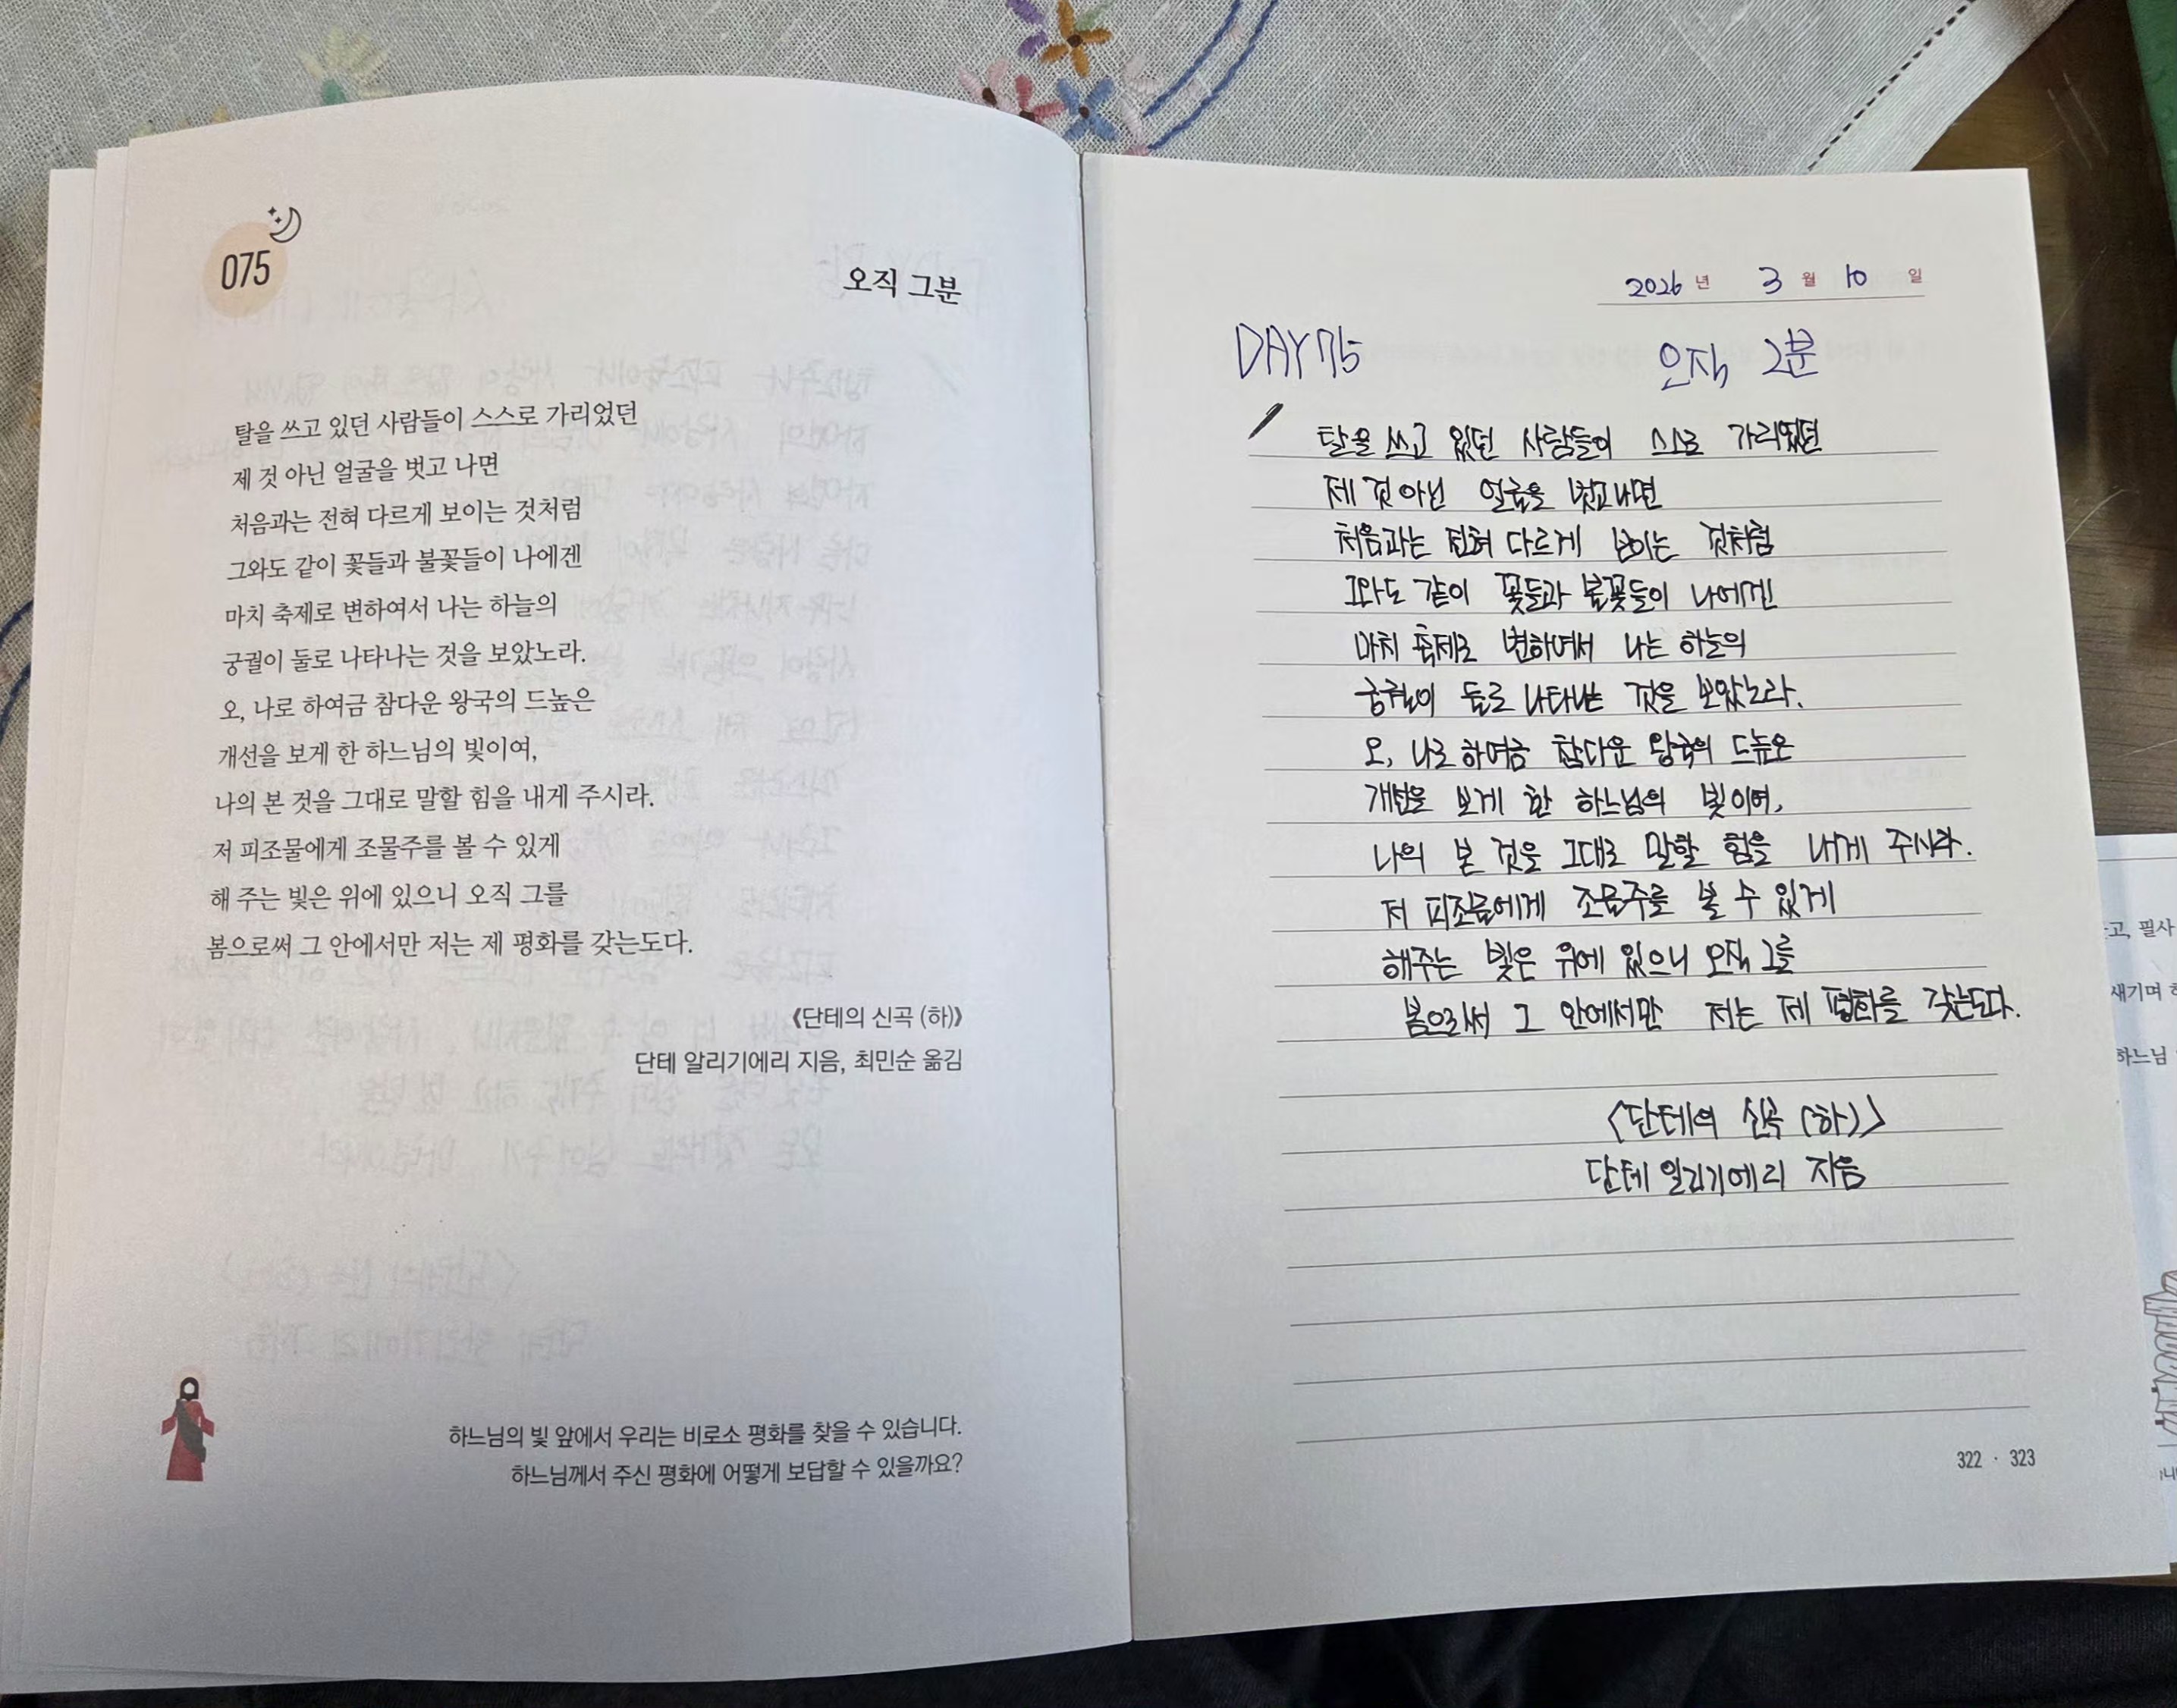 075
오직 그분
탈을 쓰고 있던 사람들이 스스로 가리었던
제 것 아닌 얼굴을 벗고 나면
처음과는 전혀 다르게 보이는 것처럼
그와도 같이 꽃들과 불꽃들이 나에겐
마치 축제로 변하여서 나는 하늘의
궁궐이 둘로 나타나는 것을 보았노라.
오, 나로 하여금 참다운 왕국의 드높은
개선을 보게 한 하느님의 빛이여,
나의 본 것을 그대로 말할 힘을 내게 주시라.
저 피조물에게 조물주를 볼 수 있게
해 주는 빛은 위에 있으니 오직 그를
봄으로써 그 안에서만 저는 제 평화를 갖는도다.
《단테의 신곡 (하)》
단테 알리기에리 지음, 최민순 옮김
하느님의 빛 앞에서 우리는 비로소 평화를 찾을 수 있습니다.
하느님께서 주신 평화에 어떻게 보답할 수 있을까요?
2026 년 3 월 10 일
DAY 75 오직 그분
탈을 쓰고 있던 사람들이 스스로 가리었던
제 것 아닌 얼굴을 벗고나면
처음과는 전혀 다르게 보이는 것처럼
그와도 같이 꽃들과 불꽃들이 나에겐
마치 축제로 변하여서 나는 하늘의
궁궐이 둘로 나타나는 것을 보았노라.
오, 나로 하여금 참다운 왕국의 드높은
개선을 보게 한 하느님의 빛이여,
나의 본 것을 그대로 말할 힘을 내게 주시라.
저 피조물에게 조물주를 볼 수 있게
해주는 빛은 위에 있으니 오직 그를
봄으로써 그 안에서만 저는 제 평화를 갖는도다.
<단테의 신곡 (하)>
단테 알리기에리 지음
322 · 323
고, 필사
새기며
하느님